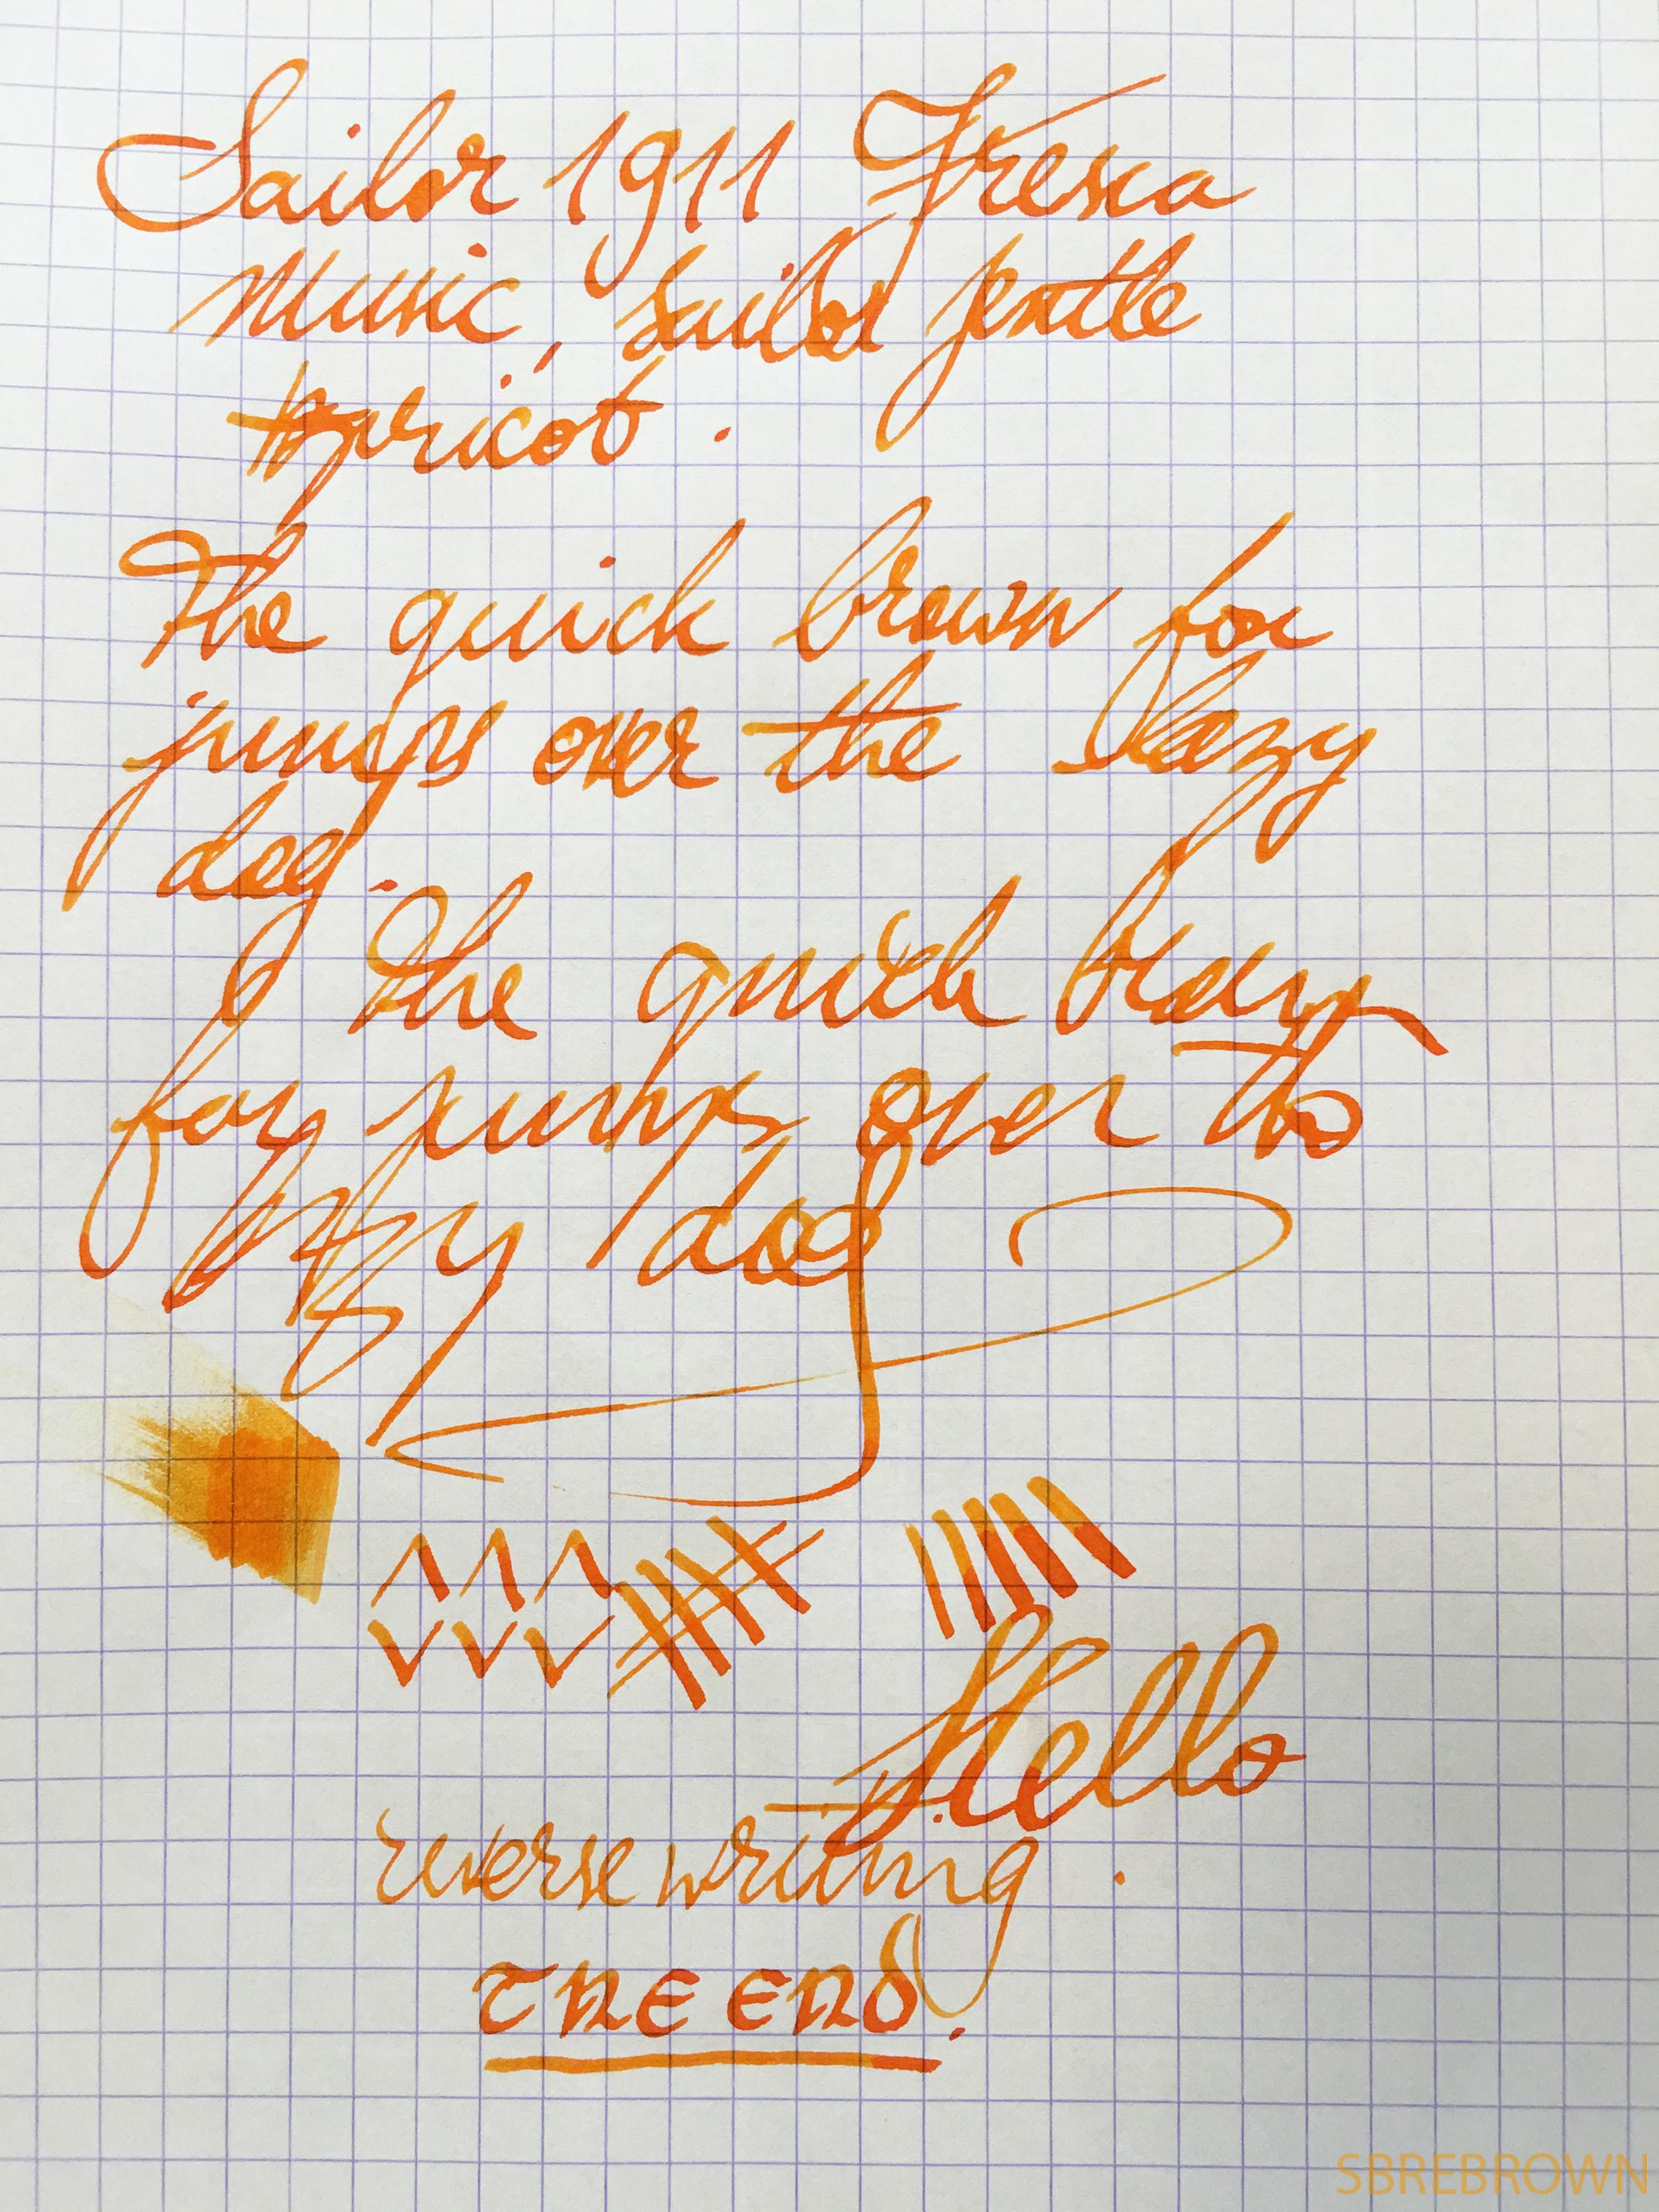 Sailor 1911 Fresca
Music, sailor jentle
apricot.
The quick brown fox
jumps over the lazy
dog.
The quick brown
fox jumps over the
lazy dog
Hello
reverse writing.
THE END.
SBREBROWN